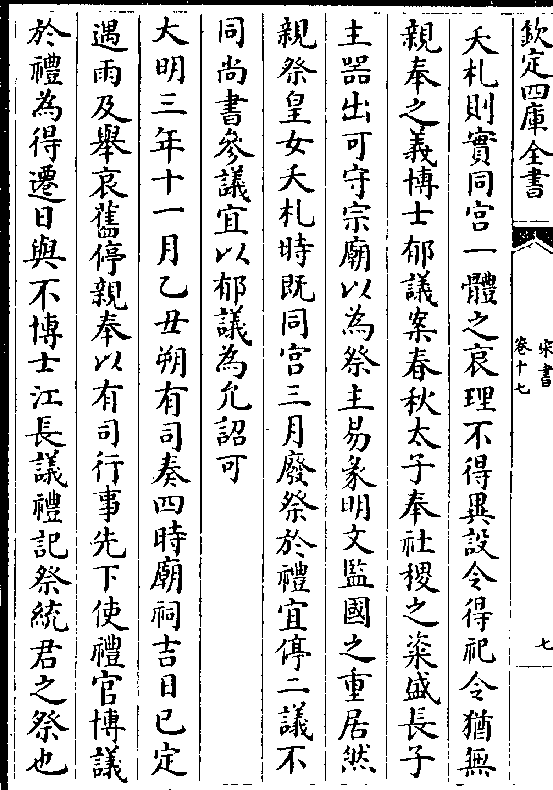 欽定四庫全書
宋書
卷十七
七
夭札則實同宫一體之哀理不得異設令得祀令猶無
親奉之義博士郁議案春秋太子奉社稷之粢盛長子
主器出可守宗廟以為祭主易彖明文監國之重居然
親祭皇女夭札時既同宫三月廢祭於禮宜停二議不
同尚書參議宜以郁議為允詔可
大明三年十一月乙丑朔有司奏四時廟祠吉日已定
遇雨及舉哀舊停親奉以有司行事先下使禮官博議
於禮為得遷日與不博士江長議禮記祭統君之祭也